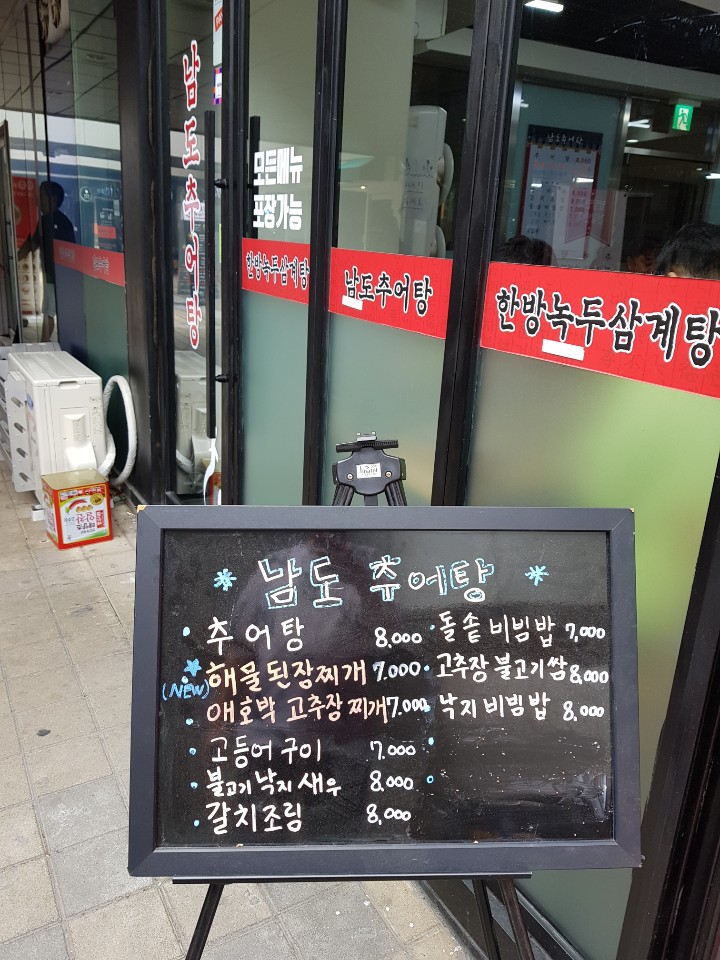 남도추어탕
모든메뉴
포장가능
한방녹두삼계탕
남도추어탕
한방녹두삼계탕
남도추어탕
* 남도 추어탕 *
• 추어탕 8,000
* 해물된장찌개 7.000
(NEW)
• 애호박 고추장찌개 7.000
• 고등어구이 7.000
• 불고기낙지새우 8.000
• 갈치조림 8,000
• 돌솥비빔밥 7,000
• 고추장불고기쌈 8,000
• 낙지비빔밥 8,000